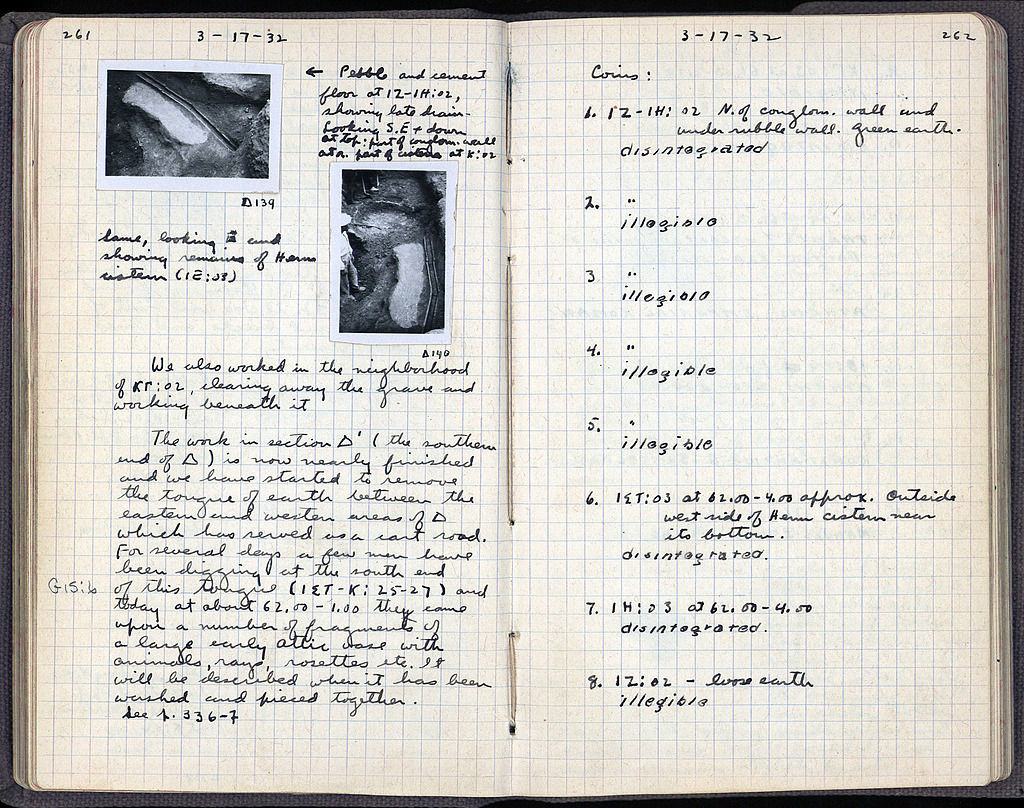 261
3-17-32
← Pebble and cement
floor at IZ-IH:02,
showing late drain-
Looking S.E + down
at top. part of conglom. wall
at r. part of cistern at K:02
Δ139
Same, looking E and
showing remains of Herm
cistern (IE:03)
Δ140
We also worked in the neighborhood
of KΓ:02, clearing away the grave and
working beneath it
The work in section Δ' (the southern
end of Δ) is now nearly finished
and we have started to remove
the tongue of earth between the
eastern and western areas of Δ
which has served as a cart road.
For several days a few men have
been digging at the south end
G15:6
of this tongue (IΣT-K: 25-27) and
today at about 62.00-1.00 they came
upon a number of fragments of
a large early Attic vase with
animals, rays, rosettes etc. It
will be described when it has been
washed and pieced together.
See p. 336-7
3-17-32
262
Coins:
1. IZ-IH: 02 N. of conglom. wall and
under rubble wall. green earth.
disintegrated
2. "
illegible
3 "
illegible
4. "
illegible
5. "
illegible
6. IΣT:03 at 62.00-4.00 approx. Outside
west side of Herm cistern near
its bottom.
disintegrated.
7. IH:03 at 62.00-4.00
disintegrated.
8. IZ:02 - loose earth
illegible